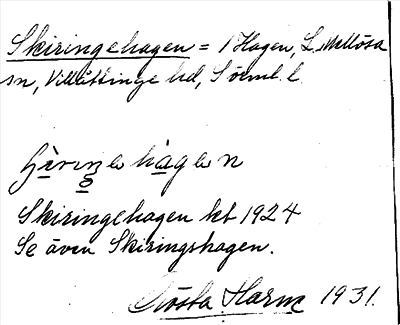 Skiringehagen = 1 Hagen, L. Mellösa
sn, Villåttinge hd, Sörml. l.
Skiringehagen kt 1924
Se även Skiringshagen.
Gösta Harm 1931.